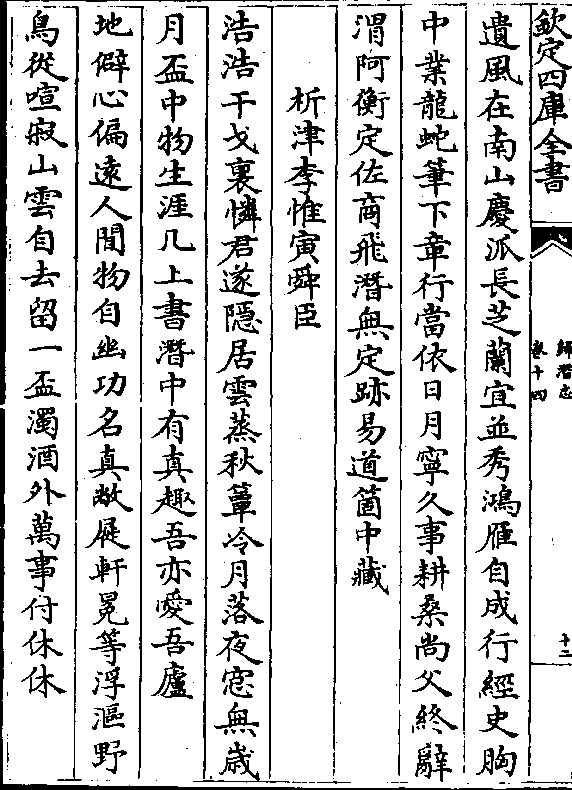 欽定四庫全書
歸潛志
卷十四
十二
遺風在南山慶派長芝蘭宜並秀鴻雁自成行經史胸
中業龍蛇筆下章行當依日月寧久事耕桑尚父終辭
渭阿衡定佐商飛潛無定跡易道箇中藏
析津李惟寅舜臣
浩浩干戈裏憐君遂隱居雲蒸秋簟冷月落夜窓無歳
月盃中物生涯几上書潛中有真趣吾亦愛吾廬
地僻心偏遠人閒物自幽功名真敝屣軒冕等浮漚野
鳥從喧寂山雲自去留一盃濁酒外萬事付休休